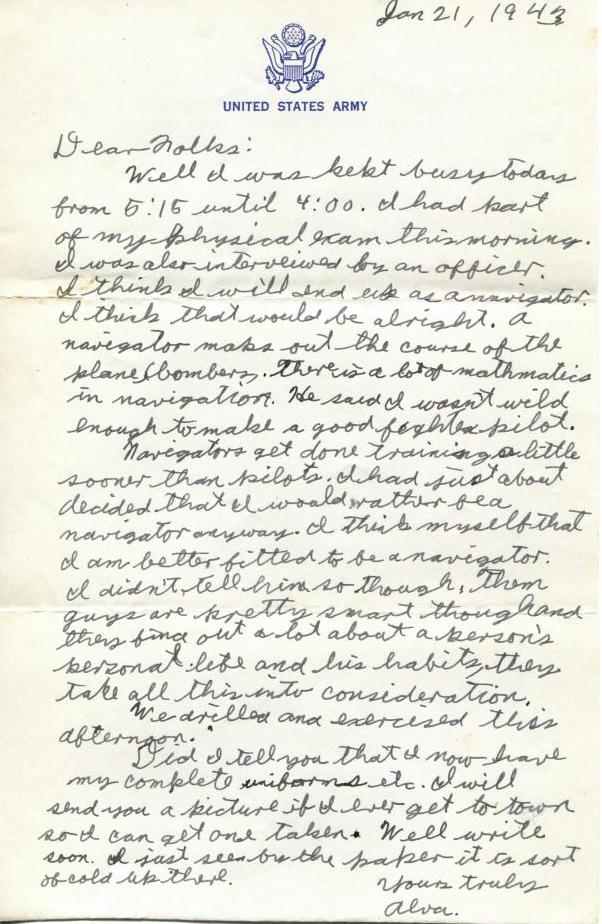 Jan 21, 1943
UNITED STATES ARMY
Dear Folks:
Well I was kept busy today
from 5:15 until 4:00. I had part
of my physical exam this morning.
I was also interveiwed by an officer.
I think I will end up as a navigator.
I think that would be alright. A
navigator maks out the course of the
plane (bombers). There is a lot of mathmatics
in navigation. He said I wasn't wild
enough to make a good fighter pilot.
Navigators get done training a little
sooner than pilots. I had just about
decided that I would rather be a
navigator anyway. I think myself that
I am better fitted to be a navigator.
I didn't tell him so though. Them
guys are pretty smart though and
they find out a lot about a person's
personal life and his habits, they
take all this into consideration.
We drilled and exercised this
afternoon.
Did I tell you that I now have
my complete uniforms etc. I will
send you a picture if I ever get to town
so I can get one taken. Well write
soon. I just seen by the paper it is sort
of cold up there.
Yours truly
Alva.